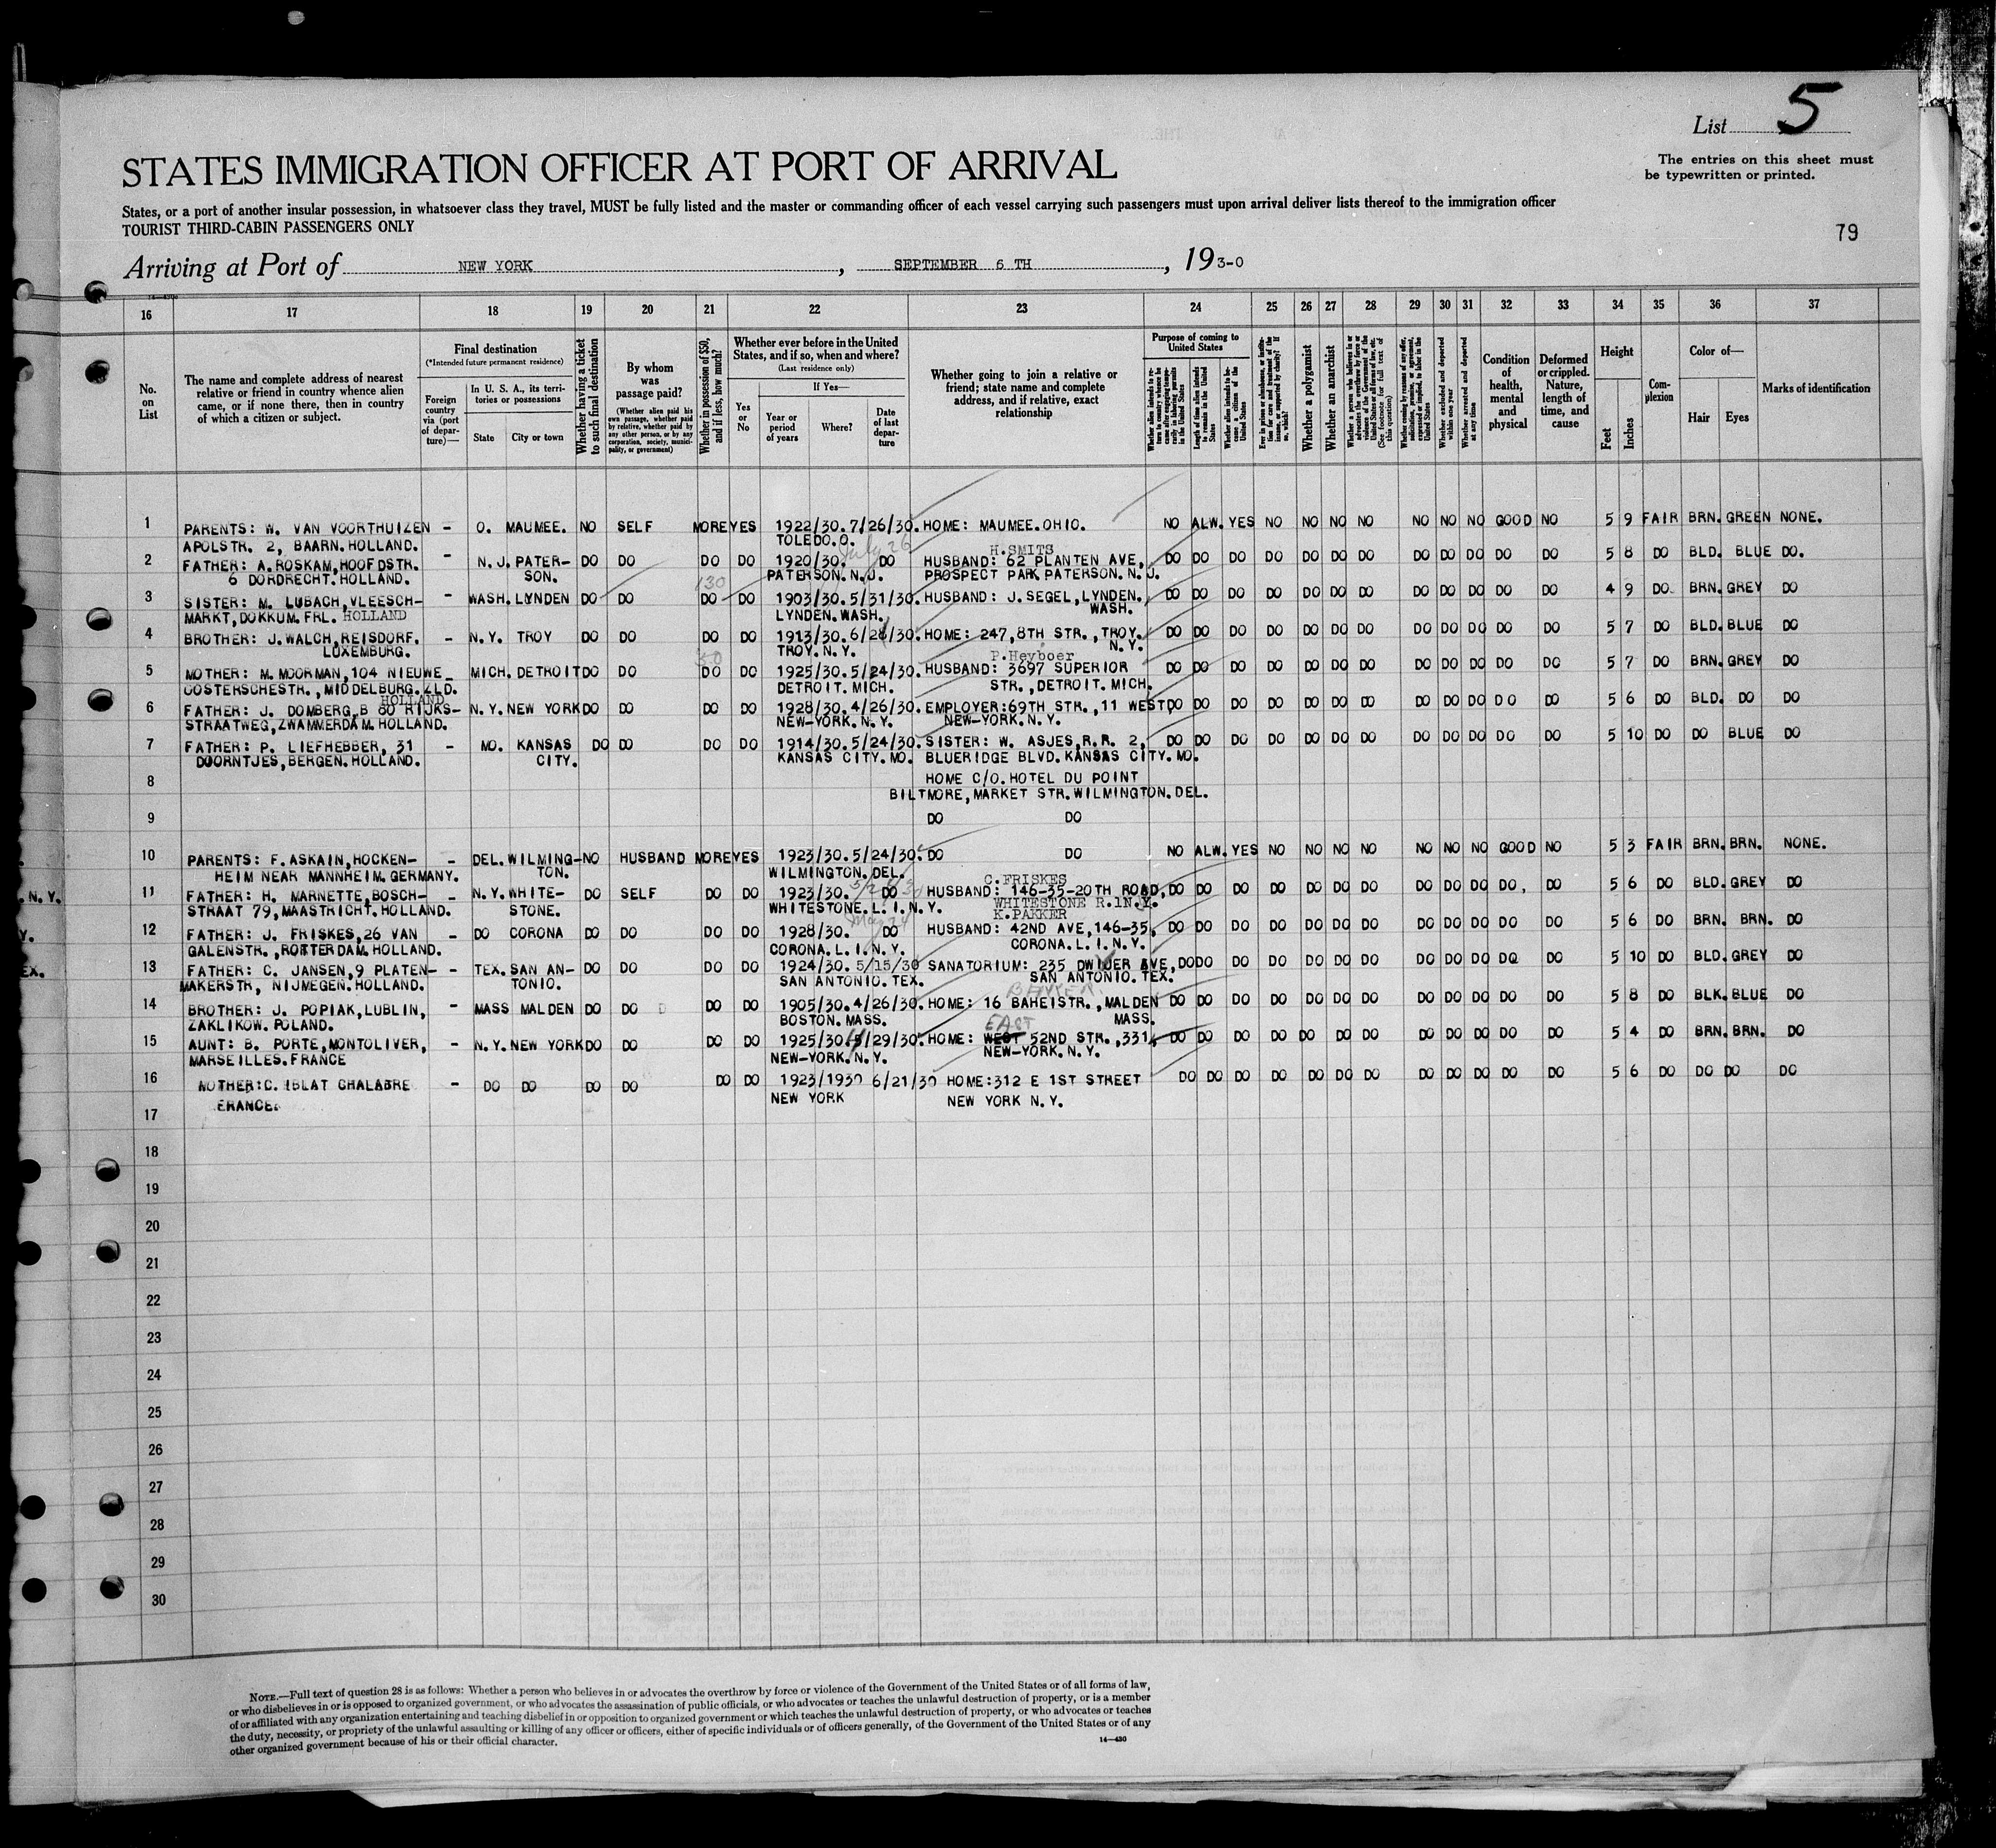 List 5
The entries on this sheet must
be typewritten or printed.
STATES IMMIGRATION OFFICER AT PORT OF ARRIVAL
States, or a port of another insular possession, in whatsoever class they travel, MUST be fully listed and the master or commanding officer of each vessel carrying such passengers must upon arrival deliver lists thereof to the immigration officer
TOURIST THIRD-CABIN PASSENGERS ONLY
79
Arriving at Port of NEW YORK, SEPTEMBER 6 TH, 193-0
16 17 18 19 20 21 22 23 24 25 26 27 28 29 30 31 32 33 34 35 36 37
No. on List
The name and complete address of nearest
relative or friend in country whence alien
came, or if none there, then in country
of which a citizen or subject.
Final destination
(*Intended future permanent residence)
Foreign country via (port of departure)—
In U. S. A., its territories or possessions
State City or town
Whether having a ticket to such final destination
By whom was passage paid?
(Whether alien paid his own passage, whether paid by relative, whether paid by any other person, or by any corporation, society, municipality, or government)
Whether in possession of $50, and if less, how much?
Whether ever before in the United States, and if so, when and where?
(Last residence only)
Yes or No
If Yes—
Year or period of years
Where?
Date of last departure
Whether going to join a relative or
friend; state name and complete
address, and if relative, exact
relationship
Purpose of coming to United States
Whether a polygamist
Whether an anarchist
Whether excluded and deported within one year
Whether arrested and deported at any time
Condition of health, mental and physical
Deformed or crippled. Nature, length of time, and cause
Height
Feet Inches
Complexion
Color of—
Hair Eyes
Marks of identification
1 PARENTS: W. VAN VOORTHUIZEN - O. MAUMEE. NO SELF MORE YES 1922/30. 7/26/30. HOME: MAUMEE.OHIO. NO ALW. YES NO NO NO NO NO NO NO GOOD NO 5 9 FAIR BRN. GREEN NONE.
APOLSTR. 2, BAARN. HOLLAND. TOLEDO.O. July 26 H.SMITS
2 FATHER: A. ROSKAM, HOOFDSTR. - N.J. PATER- DO DO DO DO 1920/30. DO HUSBAND: 62 PLANTEN AVE, DO DO DO DO DO DO DO DO DO DO DO DO 5 8 DO BLD. BLUE DO.
6 DORDRECHT. HOLLAND. SON. 130 PATERSON. N.J. PROSPECT PARK PATERSON. N.J.
3 SISTER: M. LUBACH, VLEESCH- - WASH. LYNDEN DO DO DO DO 1903/30. 5/31/30. HUSBAND: J. SEGEL, LYNDEN. DO DO DO DO DO DO DO DO DO DO DO DO 4 9 DO BRN. GREY DO
MARKT, DOKKUM. FRL. HOLLAND LYNDEN. WASH. WASH.
4 BROTHER: J. WALCH, REISDORF. - N.Y. TROY DO DO DO DO 1913/30. 6/28/30. HOME: 247, 8TH STR., TROY. DO DO DO DO DO DO DO DO DO DO DO DO 5 7 DO BLD. BLUE DO
LUXEMBURG. 50 TROY. N.Y. N.Y.
P.Heyboer
5 MOTHER: M. MOORMAN, 104 NIEUWE MICH. DETROIT DO DO DO DO 1925/30. 5/24/30. HUSBAND: 3697 SUPERIOR DO DO DO DO DO DO DO DO DO DO DO DO 5 7 DO BRN. GREY DO
OOSTERSCHESTR., MIDDELBURG. ZLD. DETROIT. MICH. STR., DETROIT. MICH.
HOLLAND
6 FATHER: J. DOMBERG, B 80 RIJKS- - N.Y. NEW YORK DO DO DO DO 1928/30. 4/26/30. EMPLOYER: 69TH STR., 11 WEST, DO DO DO DO DO DO DO DO DO DO DO DO 5 6 DO BLD. DO DO
STRAATWEG, ZWAMMERDAM. HOLLAND. NEW-YORK. N.Y. NEW-YORK. N.Y.
7 FATHER: P. LIEFHEBBER, 31 - MO. KANSAS DO DO DO DO 1914/30. 5/24/30. SISTER: W. ASJES, R.R. 2, DO DO DO DO DO DO DO DO DO DO DO DO 5 10 DO DO BLUE DO
DOORNTJES, BERGEN. HOLLAND. CITY. KANSAS CITY. MO. BLUERIDGE BLVD. KANSAS CITY. MO.
8 HOME C/O. HOTEL DU POINT
BILTMORE, MARKET STR. WILMINGTON. DEL.
9 DO DO
10 PARENTS: F. ASKAIN, HOCKEN- - DEL. WILMING- NO HUSBAND MORE YES 1923/30. 5/24/30. DO DO NO ALW. YES NO NO NO NO NO NO NO GOOD NO 5 3 FAIR BRN. BRN. NONE.
HEIM NEAR MANNHEIM. GERMANY. TON. WILMINGTON. DEL.
C.FRISKES
N.Y. 11 FATHER: H. MARNETTE, BOSCH- - N.Y. WHITE- DO SELF DO DO 1923/30. DO HUSBAND: 146-35-20TH ROAD, DO DO DO DO DO DO DO DO DO DO DO, DO 5 6 DO BLD. GREY DO
STRAAT 79, MAASTRICHT. HOLLAND. STONE. WHITESTONE. L.I.N.Y. WHITESTONE R.1N.Y.
May 24 K.PAKKER
Y. 12 FATHER: J. FRISKES, 26 VAN - DO CORONA DO DO DO DO 1928/30. DO HUSBAND: 42ND AVE, 146-35, DO DO DO DO DO DO DO DO DO DO DO DO 5 6 DO BRN. BRN. DO
GALENSTR., ROTTERDAM. HOLLAND. CORONA. L.I.N.Y. CORONA. L.I.N.Y.
EX. 13 FATHER: C. JANSEN, 9 PLATEN- - TEX. SAN AN- DO DO DO DO 1924/30. 5/15/30 SANATORIUM: 235 DWIJER AVE, DO DO DO DO DO DO DO DO DO DO DO DO 5 10 DO BLD. GREY DO
MAKERSTR, NIJMEGEN. HOLLAND. TONIO. SAN ANTONIO. TEX. SAN ANTONIO. TEX.
14 BROTHER: J. POPIAK, LUBLIN, - MASS MALDEN DO DO DO DO 1905/30. 4/26/30. HOME: 16 BAHEISTR., MALDEN DO DO DO DO DO DO DO DO DO DO DO DO 5 8 DO BLK. BLUE DO
ZAKLIKOW. POLAND. BOSTON. MASS. EAST MASS.
15 AUNT: B. PORTE, MONTOLIVER, - N.Y. NEW YORK DO DO DO DO 1925/30. /29/30. HOME: WEST 52ND STR., 331, DO DO DO DO DO DO DO DO DO DO DO DO 5 4 DO BRN. BRN. DO
MARSEILLES. FRANCE NEW-YORK. N.Y. NEW-YORK. N.Y.
16 MOTHER: C. IBLAT CHALABRE - DO DO DO DO DO DO 1923/1930 6/21/30 HOME: 312 E 1ST STREET DO DO DO DO DO DO DO DO DO DO DO DO 5 6 DO DO DO DO
FRANCE. NEW YORK NEW YORK N.Y.
17
18
19
20
21
22
23
24
25
26
27
28
29
30
NOTE.—Full text of question 28 is as follows: Whether a person who believes in or advocates the overthrow by force or violence of the Government of the United States or of all forms of law,
or who disbelieves in or is opposed to organized government, or who advocates the assassination of public officials, or who advocates or teaches the unlawful destruction of property, or is a member
of or affiliated with any organization entertaining and teaching disbelief in or opposition to organized government or which teaches the unlawful destruction of property, or who advocates or teaches
the duty, necessity, or propriety of the unlawful assaulting or killing of any officer or officers, either of specific individuals or of officers generally, of the Government of the United States or of any
other organized government because of his or their official character.
14—430